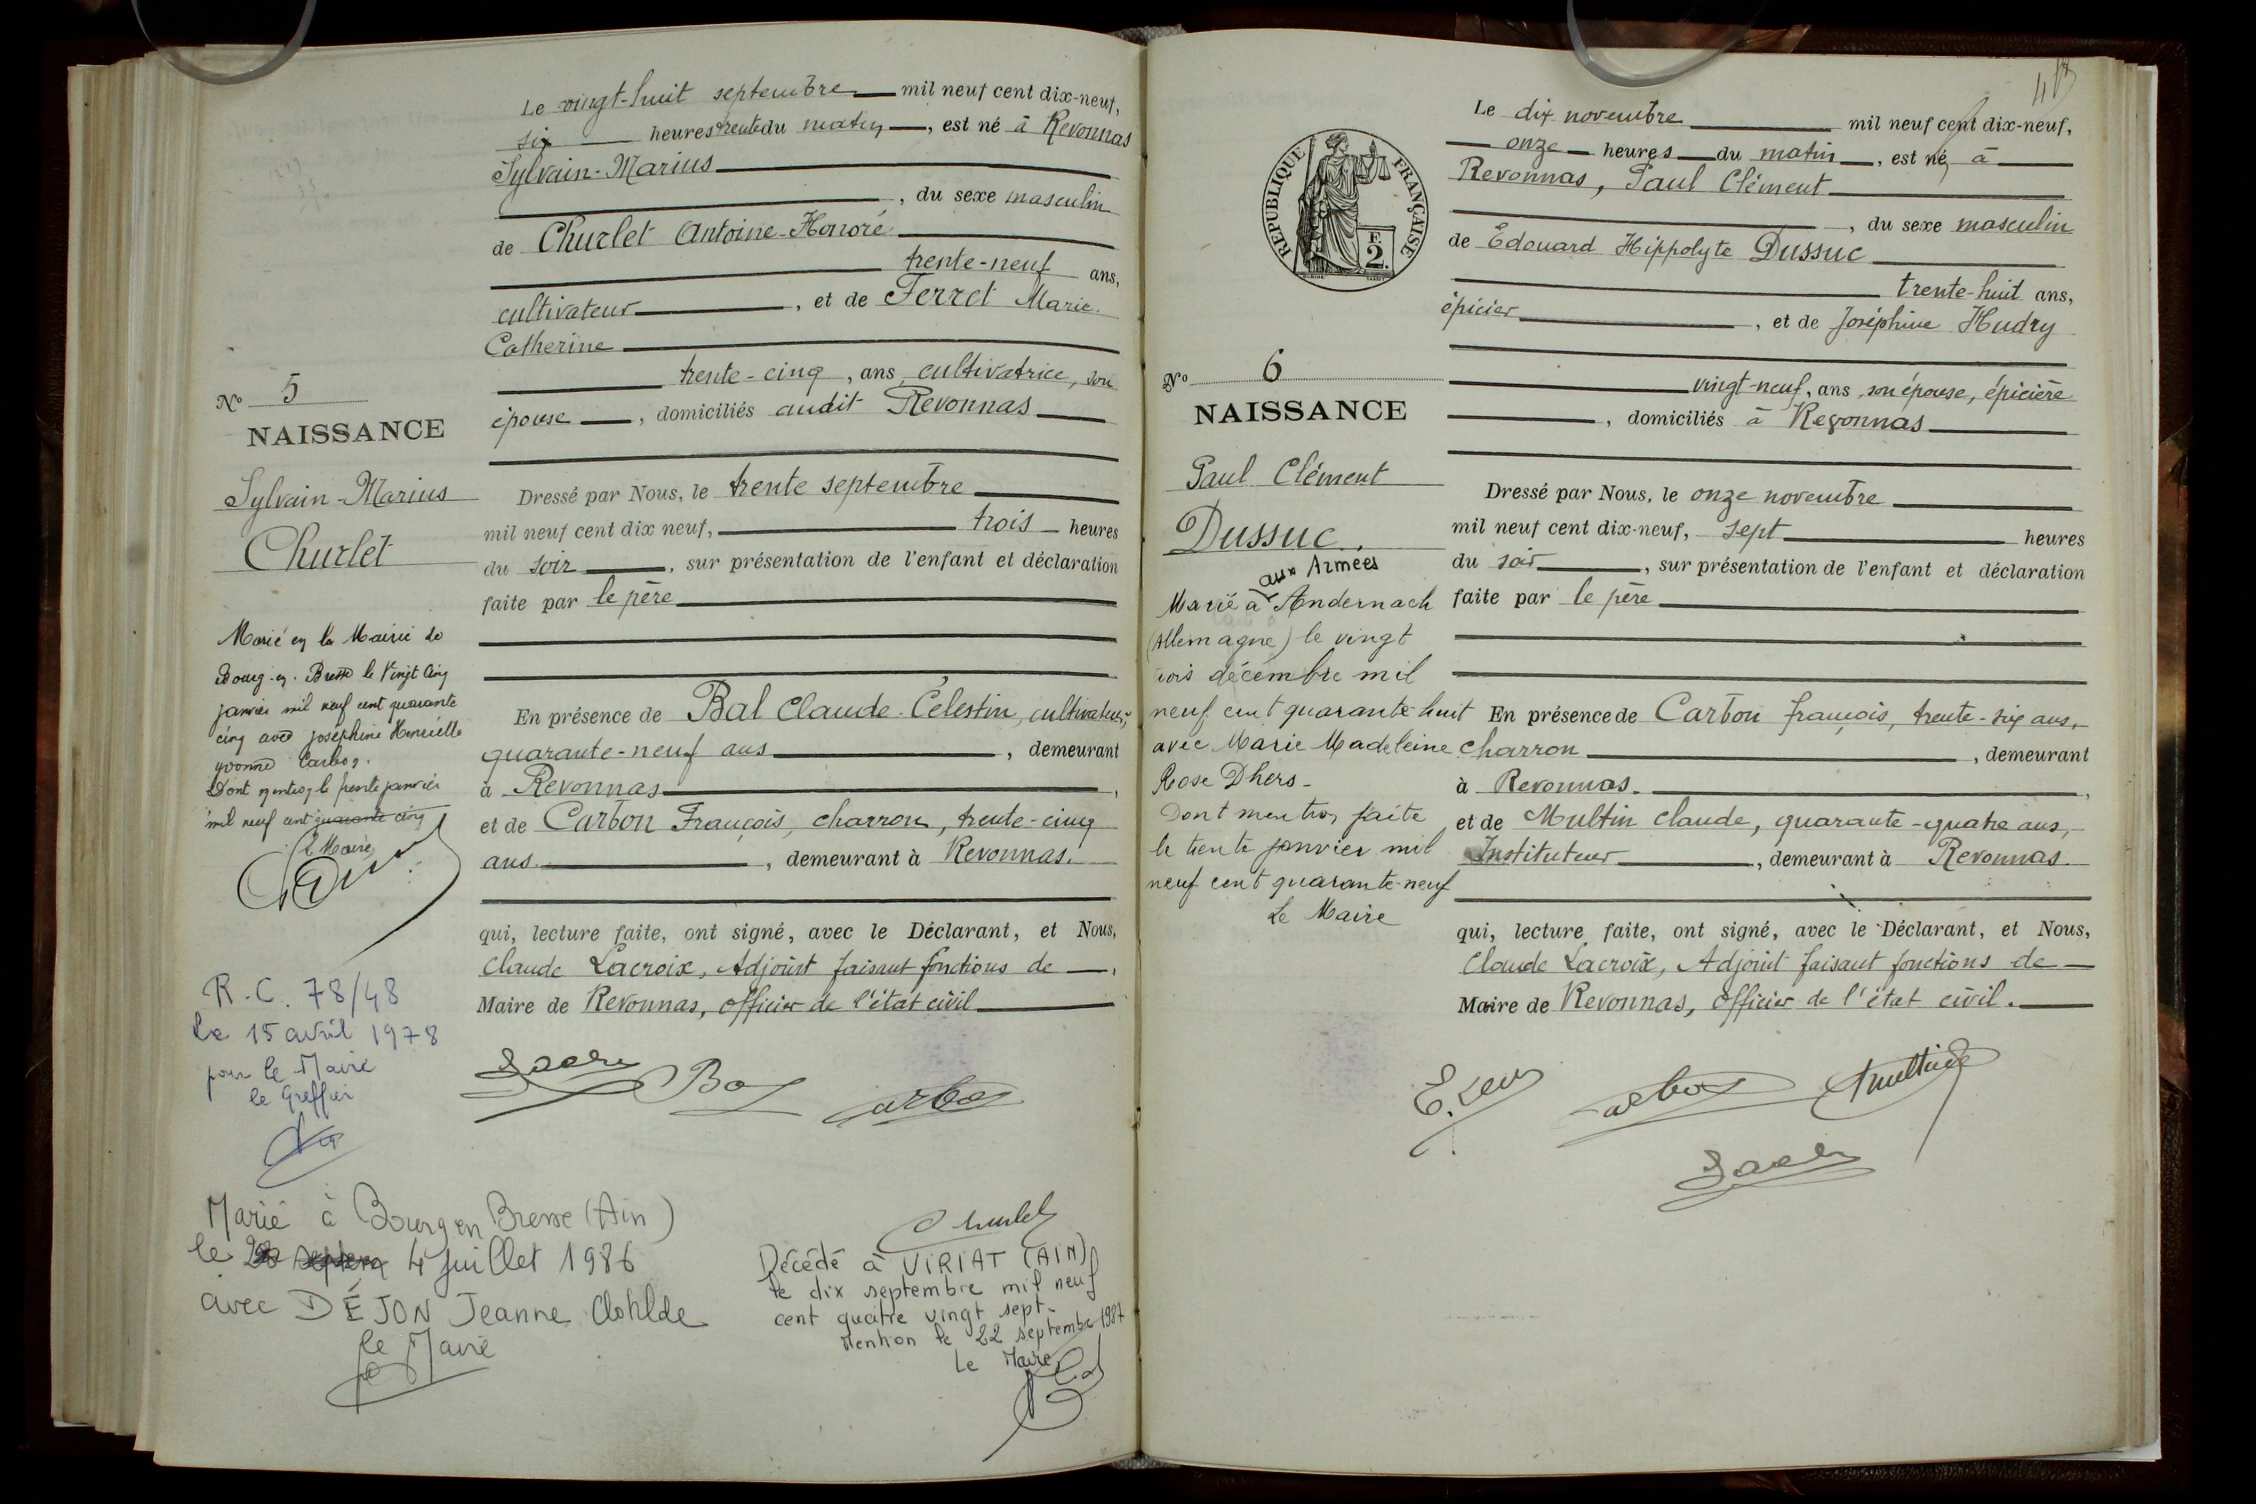 Le vingt-huit septembre mil neuf cent dix-neuf,
six heures trente du matin, est né à Revonnas
Sylvain-Marius
, du sexe masculin
de Churlet Antoine-Honoré
trente-neuf ans,
cultivateur, et de Ferret Marie
Catherine
trente-cinq, ans, cultivatrice, son
épouse, domiciliés audit Revonnas
No 5
NAISSANCE
Sylvain-Marius
Churlet
Dressé par Nous, le trente septembre
mil neuf cent dix neuf, trois heures
du soir, sur présentation de l'enfant et déclaration
faite par le père
Marié en la Mairie de
Bourg-en-Bresse le Vingt Cinq
janvier mil neuf cent quarante
cinq avec Joséphine Henriette
Yvonne Carbon.
Dont mention le trente janvier
mil neuf cent quarante cinq
Le Maire
En présence de Bal Claude-Célestin, cultivateur,
quarante-neuf ans, demeurant
à Revonnas,
et de Carbon François, charron, trente-cinq
ans, demeurant à Revonnas.
qui, lecture faite, ont signé, avec le Déclarant, et Nous,
Claude Lacroix, Adjoint faisant fonctions de,
Maire de Revonnas, officier de l'état civil
R.C. 78/48
Le 15 avril 1978
pour le Maire
le Greffier
Marié à Bourg en Bresse (Ain)
le 4 juillet 1986
avec DÉJON Jeanne Clohlde
le Maire
Churlet
Décédé à VIRIAT (AIN)
le dix septembre mil neuf
cent quatre vingt sept.
Mention le 22 septembre 1987
Le Maire
Le dix novembre mil neuf cent dix-neuf,
onze heures du matin, est né à
Revonnas, Paul Clément
, du sexe masculin
de Edouard Hippolyte Dussuc
trente-huit ans,
épicier, et de Joséphine Hudry
vingt-neuf, ans, son épouse, épicière
, domiciliés à Revonnas
RÉPUBLIQUE FRANÇAISE
F.
2.
No 6
NAISSANCE
Paul Clément
Dussuc.
Dressé par Nous, le onze novembre
mil neuf cent dix-neuf, sept heures
du soir, sur présentation de l'enfant et déclaration
faite par le père
aux Armées
Marié à Andernach
(Allemagne) le vingt
trois décembre mil
neuf cent quarante huit
avec Marie Madeleine
Rose Dhers-
Dont mention faite
le trente janvier mil
neuf cent quarante-neuf
Le Maire
En présence de Carbon François, trente-six ans,
charron, demeurant
à Revonnas.,
et de Multin Claude, quarante-quatre ans,
Instituteur, demeurant à Revonnas.
qui, lecture faite, ont signé, avec le Déclarant, et Nous,
Claude Lacroix, Adjoint faisant fonctions de
Maire de Revonnas, officier de l'état civil.